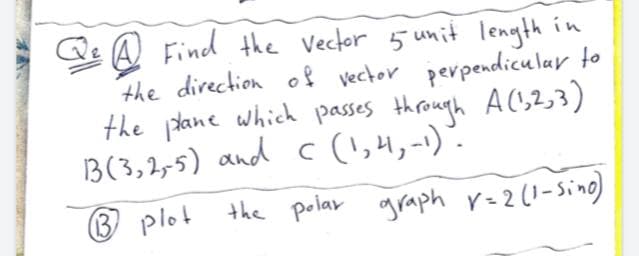 Qe (A) Find the vector 5 unit length in
the direction of vector perpendicular to
the plane which passes through A(1,2,3)
B(3,2,-5) and C (1,4,-1).
(B) plot the polar graph r=2(1-sinθ)